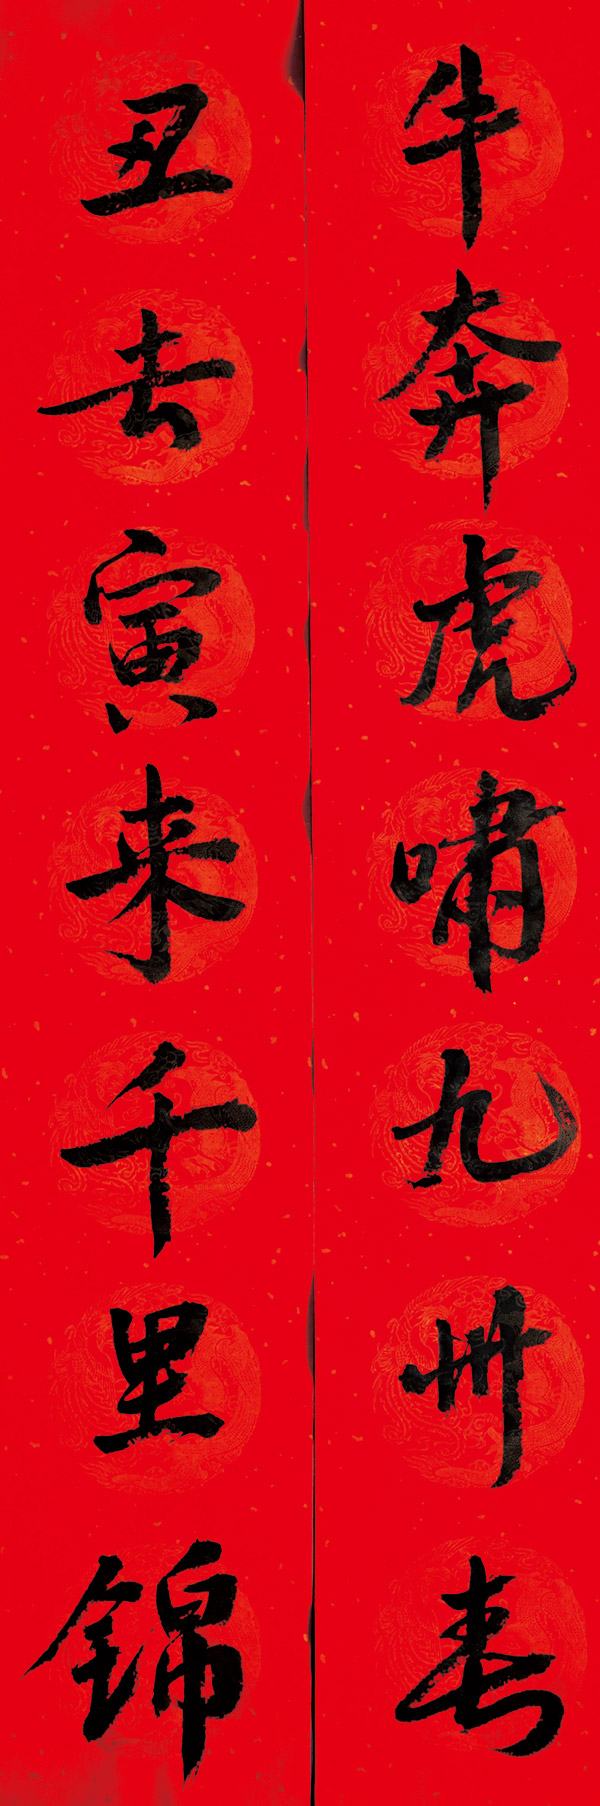 牛奔虎啸九州春
丑去寅来千里锦